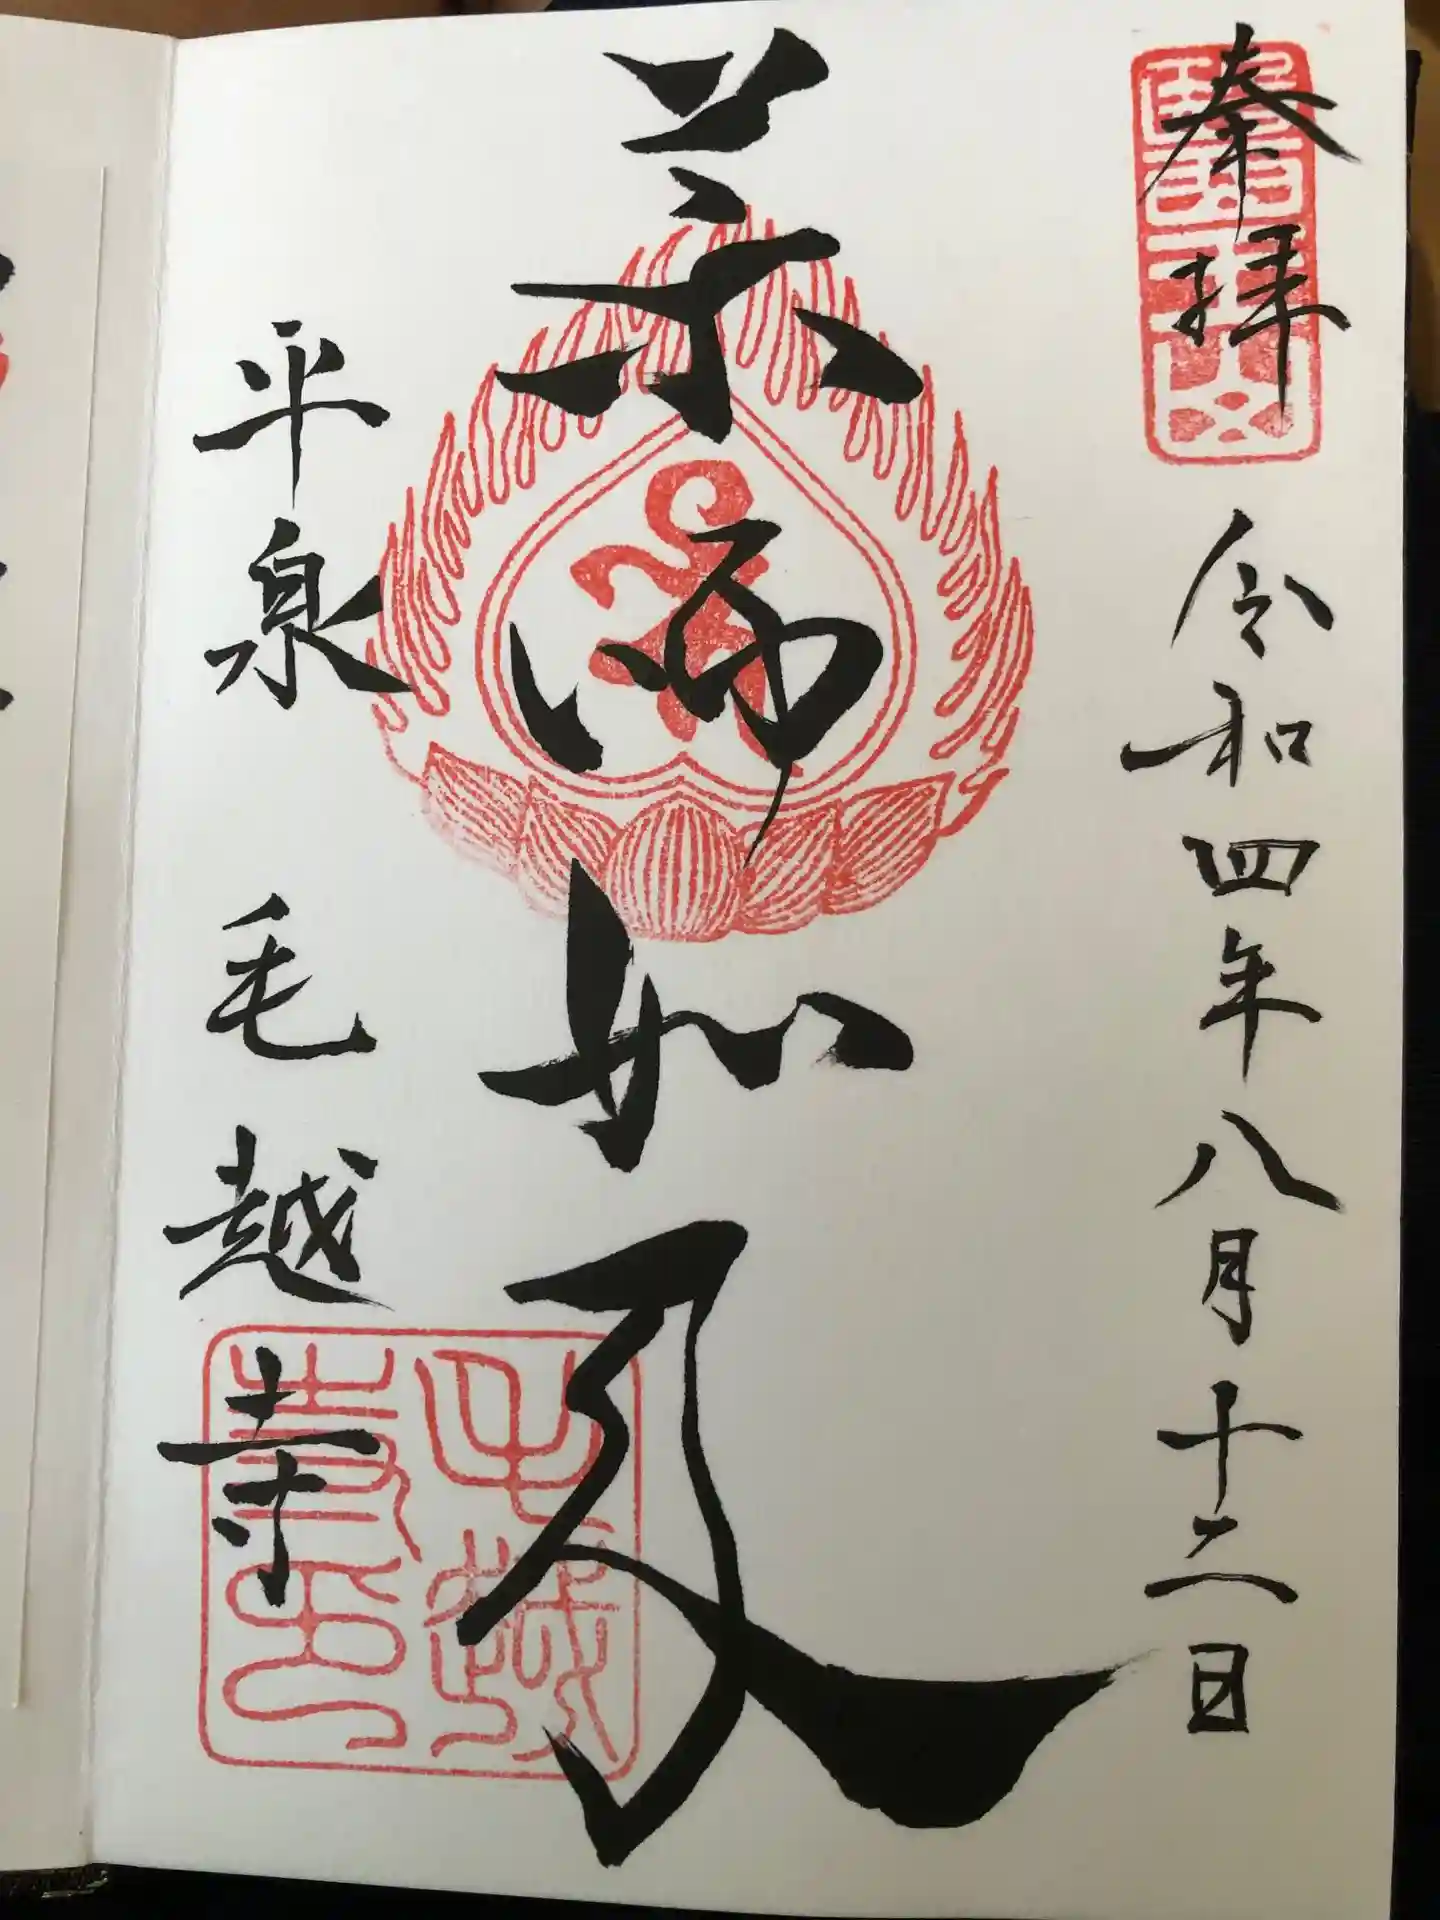 奉拝
醫王山
令和四年八月十二日
薬師如来
平泉 毛越寺
毛越
寺印